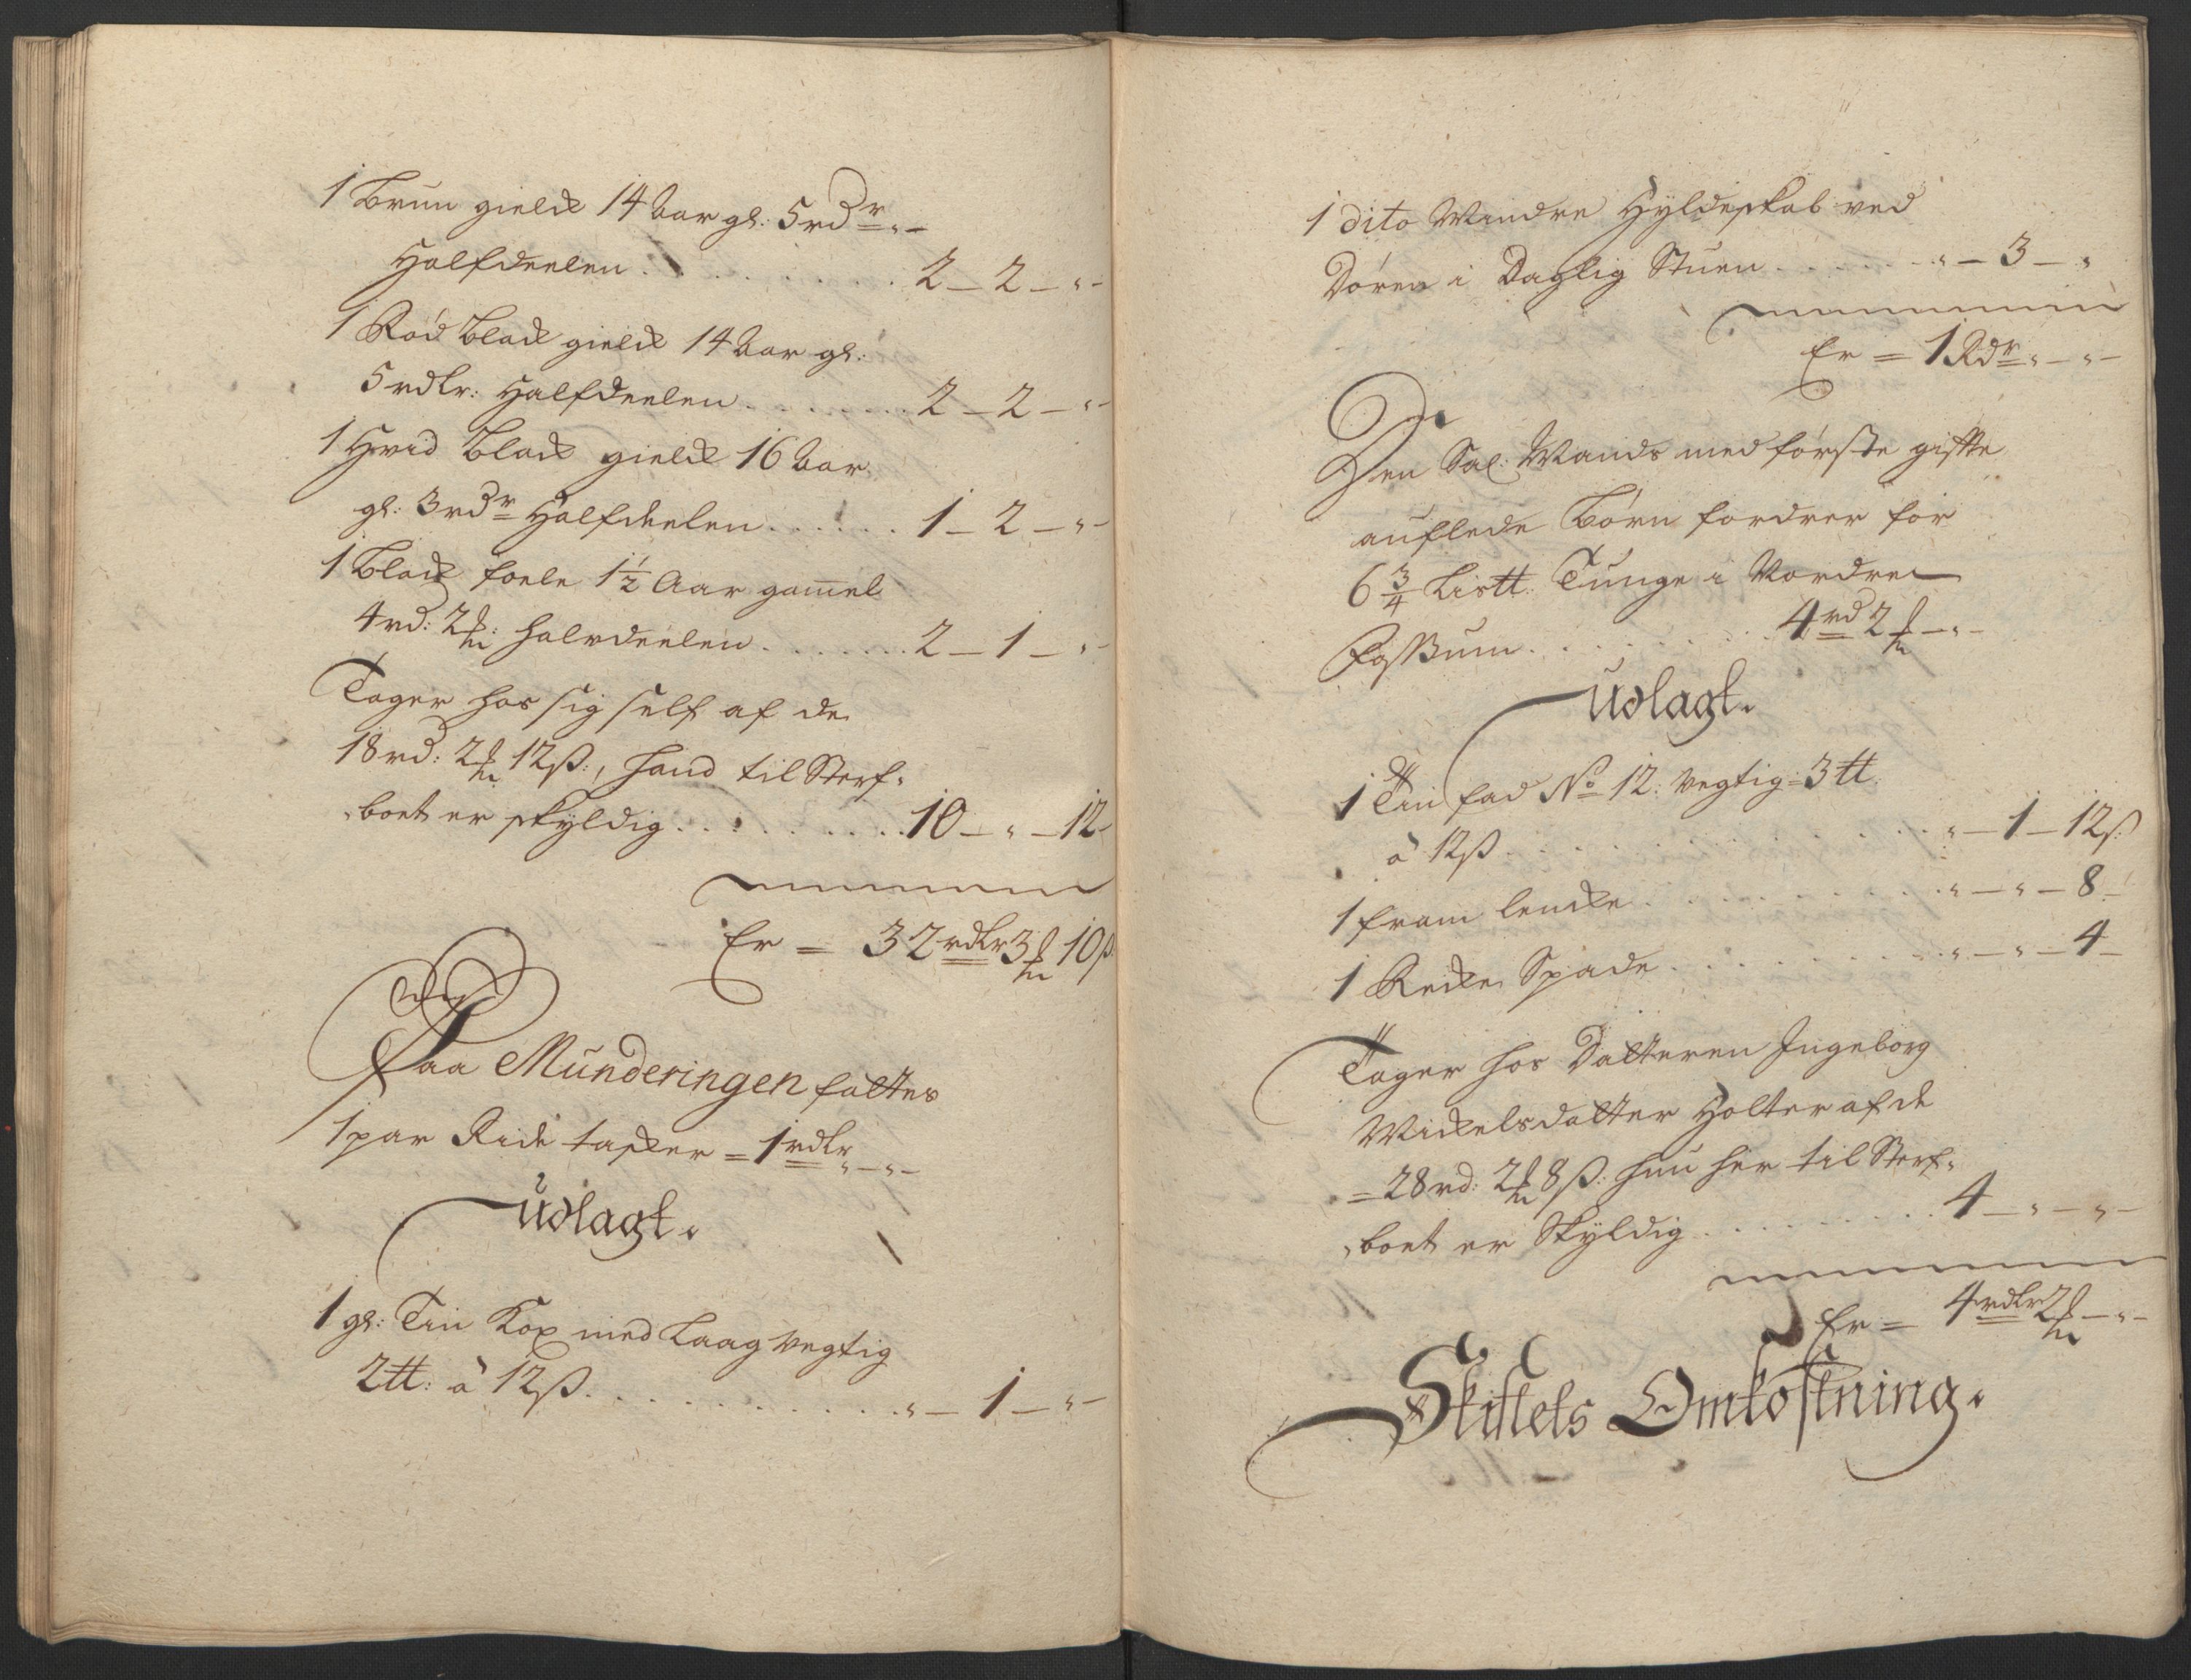 1 Brun gield 14 Aar gl: 5 rdr „ –
Halfdeelen . . . . . . . . . 2 – 2 – „ –
1 Rød Blad gield 14 Aar gl:
5 rdlr: Halfdeelen . . . . . . . 2 – 2 – „ –
1 Hvid Blad gield 16 Aar
gl: 3 rdr Halfdeelen . . . . . . 1 – 2 – „ –
1 Blad foele 1½ Aar gam̄el
4 rd: 2 ₥: halvdeelen . . . . . . . 2 – 1 – „ –
Tager hos sig self af de
18 rd: 2 ₥ 12 ß:, hand til Sterf„
„boet er skyldig . . . . . . . . . 10 – „ – 12 –
Er = 32 rdlr 3 ₥ 10 ß
Paa Munderingen fattes
1 par Ride tasker = 1 rdlr „ – „ –
Udlagt.
1 gl: Tin Kop med Laag vegtig
2 ℔: à 12 ß . . . . . . . . . . „ – 1 – „ –
1 dito Mindre Hyldeskab ved
Døren i Daglig Stuen . . . . . . „ – 3 – „
Er = 1 Rdr „ – „ –
Den Sal: Mands med første gifte
auflede Børn fordrer for
6 ¾ Lis℔: Tunge i Nordre
Fossum . . . . . . . 4 rd 2 ₥ – „ –
Udlagt.
1 Tin fad No 12: vegtig = 3 ℔
à 12 ß . . . . . . . . . . . . „ – 1 – 12 ß
1 fram lencke . . . . . . . . . . „ – „ – 8 –
1 Recke Spade . . . . . . . . . „ – „ – 4 –
Tager hos Datteren Ingeborg
Mickelsdatter Holter af de
= 28 rd: 2 ₥ 8 ß: hun her til Sterf„
„boet er Skyldig . . . . . . . . 4 – „ – „ –
Er = 4 rdlr 2 ₥ – „ –
Skiftets Omkostning.